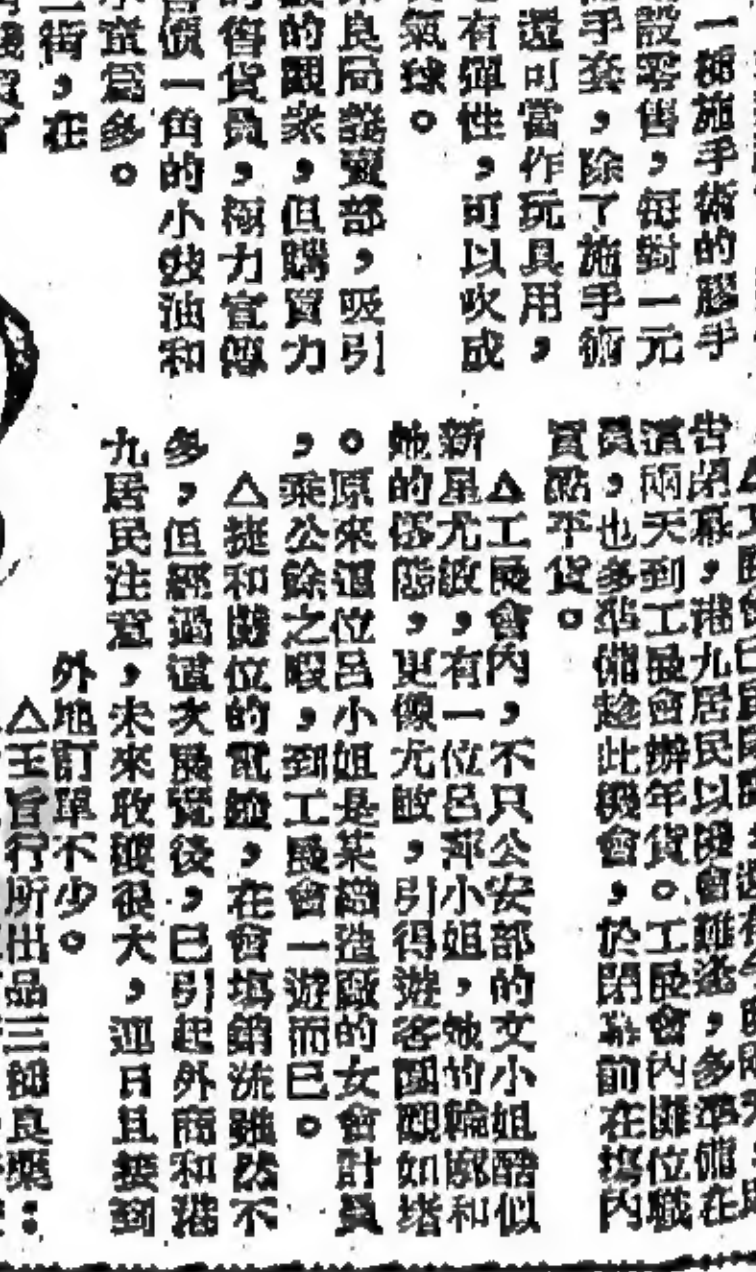 一種施手術的膠手
設零售，每對一元
手套，除了施手術
還可當作玩具用，
有彈性，可以吹成
氣球。
良局義賣部，吸引
的觀衆，但購買力
的售貨員，極力宣傳
一角的小豉油和
爲多。
一街，在
告閉幕，港九居民以機會難逢，多準備在
這兩天到工展會辦年貨。工展會內攤位職
員，也多準備趁此機會，於閉幕前在塲內
買點平貨。
△工展會內，不只公安部的文小姐酷似
新星尤敏，有一位呂萍小姐，她的輪廓和
她的儀態，更像尤敏，引得遊客圍觀如堵
。原來這位呂小姐是某織造廠的女會計員
，乘公餘之暇，到工展會一遊而已。
△捷和攤位的電鐘，在會塲銷流雖然不
多，但經過這次展覽後，已引起外商和港
九居民注意，未來收穫很大，連日且接到
外地訂單不少。
△王旨行所出品三種良藥：